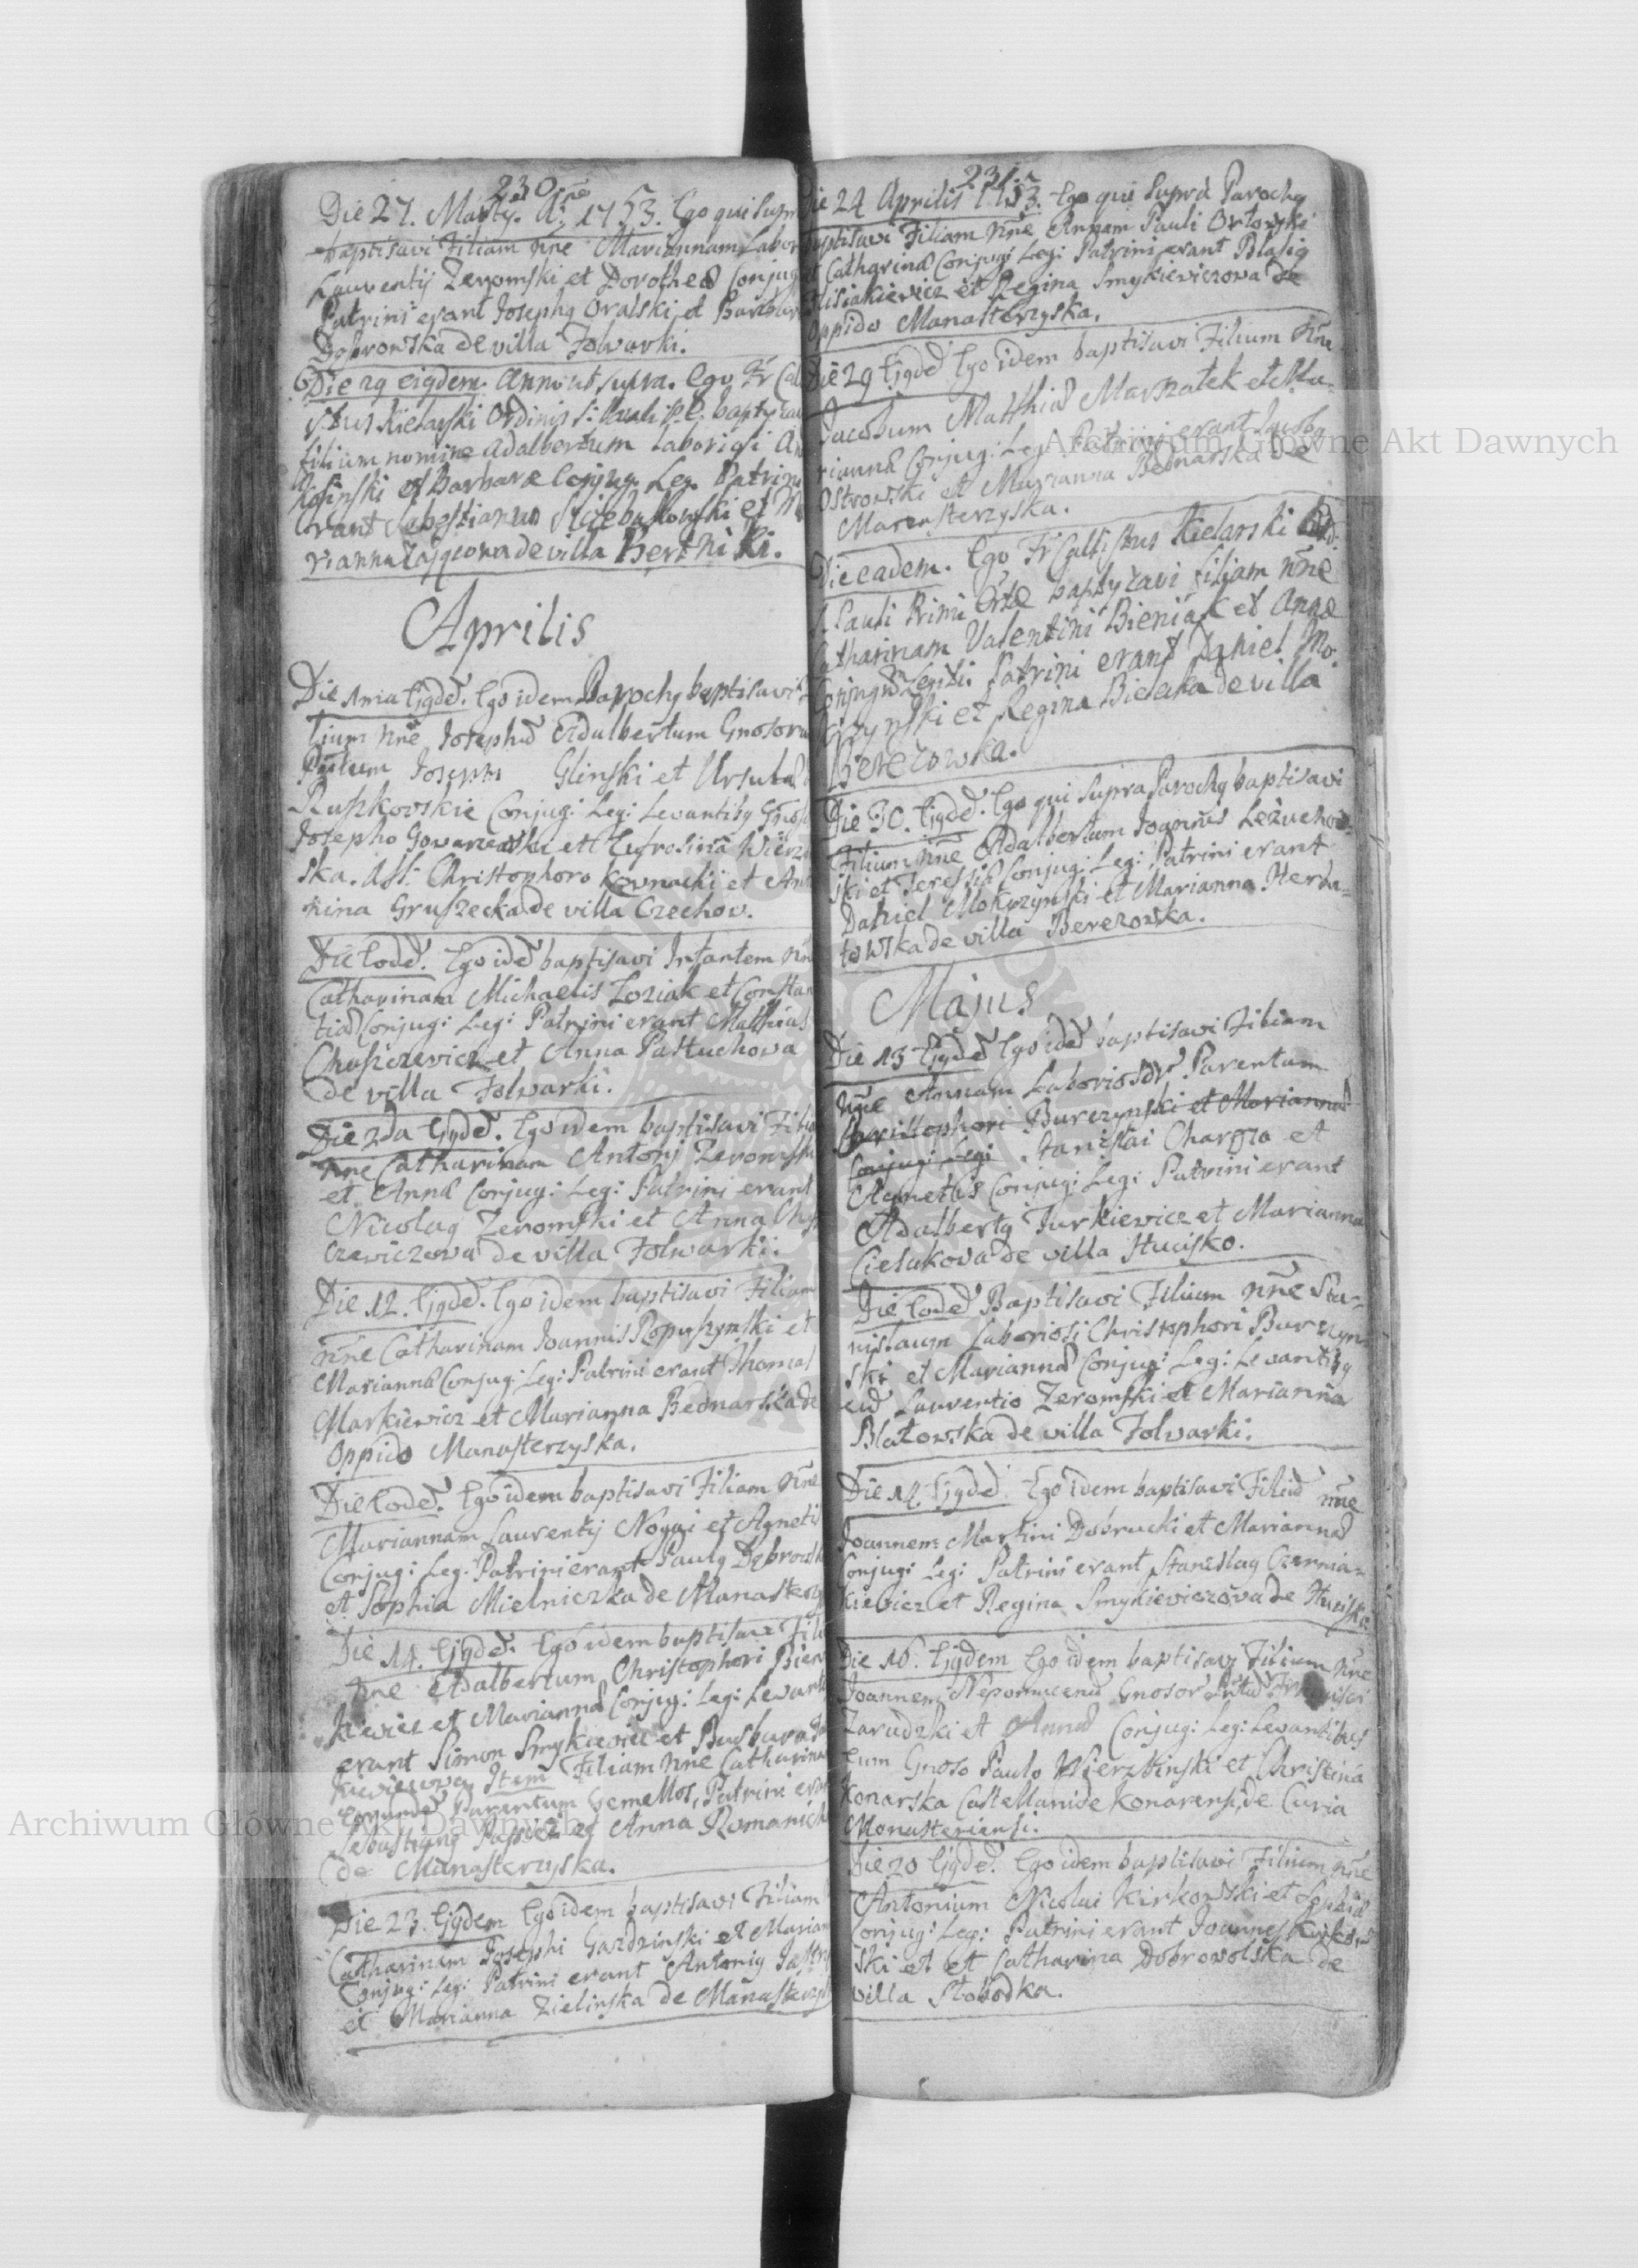 230
Die 27. Martÿ. Añ: 1753. Ego qui supra
baptisavi Filiam nñe Mariannam Labor
Laurentij Zeromski et Dorothea Conjug
Patrini erant Josephq Oralski et Barbara
Dobrowska de villa Folwarki.
Die 29 eiqdem. Anno ut supra. Ego Fr Cal
Kielarski Ordinis S: Pauli baptyzavi
filium nomine Adalbertum Laboriosi
Rosinski et Barbaræ Conjug. Leg. Patrini
erant Sebestianus et M
rianna de villa Berthiki.
Aprilis
Die 1ma Ejqdē. Ego idem Parochq baptisavi
lium nñe Josephū Adalbertum Gnosorum
Joseph Glinski et Ursula
Ruszkowskie Conjugi: Leg: Levantibq Gnoso
Josepho et Eufrosina Wierz
ska. Ass: Christophoro Kownacki et An
nina Gruszecka de villa Czechow.
Die Eodē. Ego idē baptisavi Infantem nñe
Catharinam Michaelis Loziak et Constan
tia Conjugi: Leg: Patrini erant Matthias
Chuszczewicz et Anna Pastuchowa
de villa Folwarki.
Die 2da Ejqdē. Ego idem baptisavi Filiam
nñe Catharinam Antonj Zeromski
et Anna Conjugi: Leg: Patrini erant
Nicolaq Zeromski et Anna Chusz
czewiczowa de villa Folwarki.
Die 12. Ejqdē. Ego idem baptisavi Filiam
nñe Catharinam Joannis Ropuszynski et
Marianna Conjugi: Leg: Patrini erant Thomas
Markiewicz et Marianna Bednarska de
Oppido Manasterzyska.
Die Eodē. Ego idem baptisavi Filiam nñe
Mariannam Laurentij Nogaj et Agnetis
Conjugi: Leg: Patrini erant Paulq Dąbrowski
et Sophia Mielniczka de Manasterzy
Die 14. Ejqdē. Ego idem baptisavi Filiu
nñe Adalbertum Christophori Bien
kiewicz et Marianna Conjugi: Leg: Levant
erant Simon Smykiewicz et Barbara
kiewiczowa Item Filiam nñe Catharina
eorundē Parentum Gemellos, Patrini erant
Sebastianq et Anna Romanich
de Manasterzyska.
Die 23. Ejqdem Ego idem baptisavi Filiam
Catharinam Josephi Gazdzinski et Marian
Conjugi: Leg: Patrini erant Antoniq Jastrz
et Marianna Zielinska de Manasterzys
231
Die 24 Aprilis 1753. Ego qui supra Parochq
baptisavi Filiam nñe Annam Pauli Orłowski
et Catharina Conjugi Leg: Patrini erant Blasiq
Misiakiewicz et Regina Smykiewiczowa de
Oppido Manasterzyska.
Die 29 Ejqdē Ego idem baptisavi Filium nñe
Jacobum Matthia Marszałek et Ma-
rianna Conjug: Leg: Patrini erant Jacobq
Ostrowski et Marianna Bednarska de
Manasterzyska.
Die eadem. Ego Fr Callistus Kielarski Ord.
S. Pauli Primi Ertæ baptyzavi filiam nñe
Catharinam Valentini Bieniak et Annæ
Conjugū Legiti: Patrini erant Daniel Mo-
krzynski et Regina Bielecka de villa
Berezowka.
Die 30. Ejqdē. Ego qui supra Parochq baptisavi
Filium nñe Adalbertum Joannis Leżuchow-
ski et Teressia Conjugi: Leg: Patrini erant
Daniel Mokrzynski et Marianna Herba-
towska de villa Berezowka.
Majus
Die 13 Ejqdē Ego idē baptisavi Filiam
nñe Annam Laboriosor Parentum
Christophori Burczynski et Marianna
Conjugi Legi Stanislai Charęza et
Agnetis Conjugi: Leg: Patrini erant
Adalbertq Turkiewicz et Marianna
Cielakowa de villa Hucisko.
Die Eodē Baptisavi Filium nñe Sta-
nislaum Laboriosi Christophori Burczyn-
ski et Marianna Conjugi: Leg: Levantibq
eū Laurentio Zeromski et Marianna
Błatowska de villa Folwarki.
Die 14. Ejqdē Ego idem baptisavi Filiū nñe
Joannem Martini Dobrucki et Marianna
Conjugi Leg: Patrini erant Stanislaq Czernia-
kiewicz et Regina Smykiewiczowa de Hucisko
Die 16. Ejqdem Ego idem baptisavi Filium nñe
Joannem Nepomucenū Gnosor Francisci
Zarudzki et Anna Conjugi: Leg: Levantibus
eum Gnoso Paulo Wierzbinski et Christina
Konarska Castellanide Konarensi, de Curia
Monasteriensi.
Die 20 Ejqdē. Ego idem baptisavi Filium nñe
Antonium Nicolai Kirkowski et Sophia
Conjugi: Leg: Patrini erant Joannes Kirkow
ski et et Catharina Dobrowolska de
villa Słobodka.
Archiwum Główne Akt Dawnych
Archiwum Główne Akt Dawnych